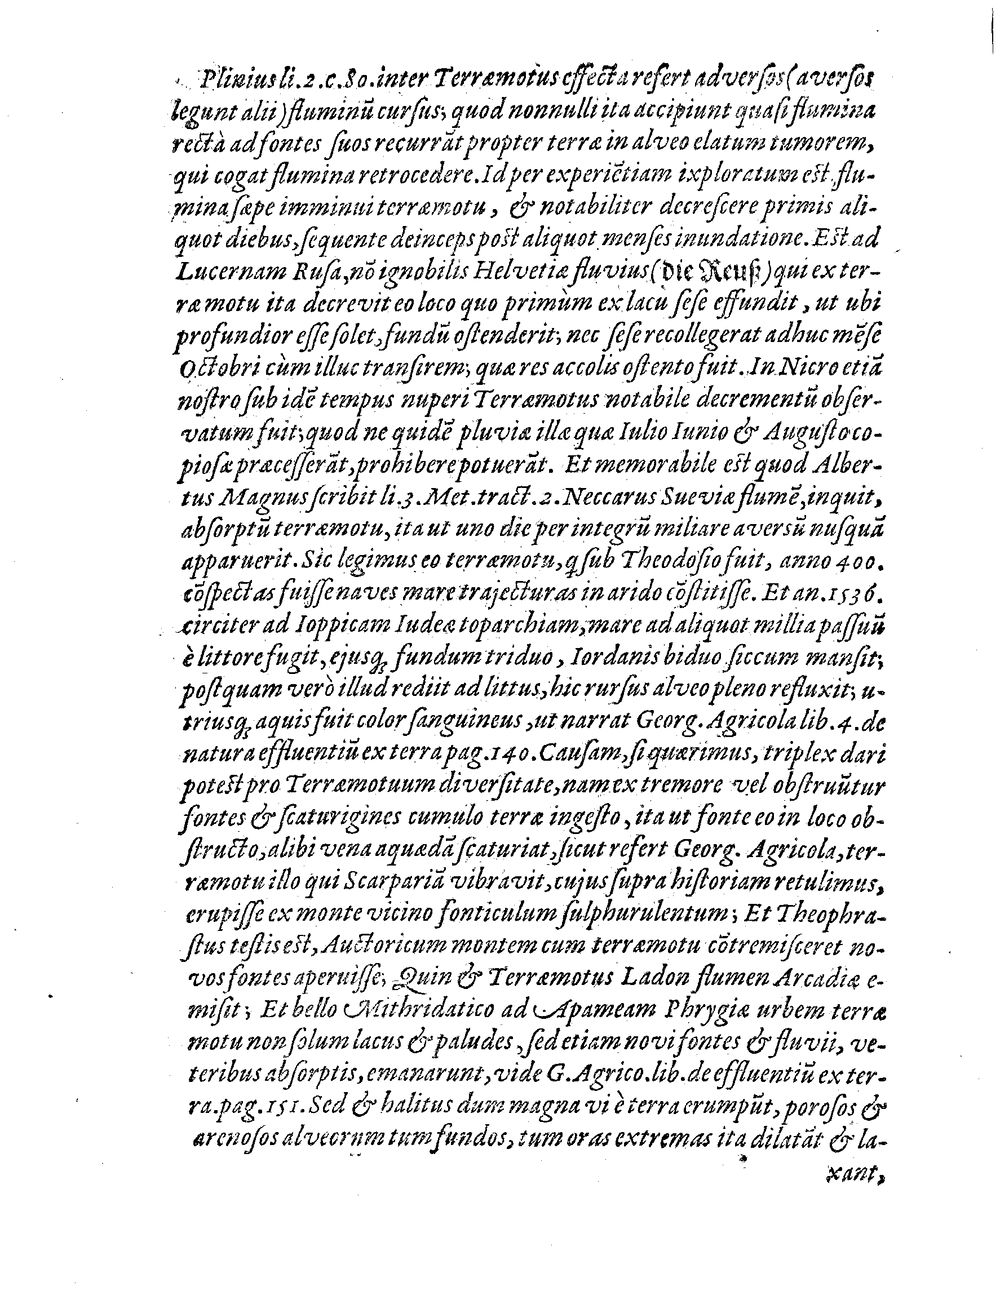 Plinius li.2.c.80.inter Terræmotus effecta refert adversos(aversos
legunt alii)fluminũ cursus; quod nonnulli ita accipiunt quasi flumina
rectà ad fontes suos recurrãt propter terræ in alveo elatum tumorem,
qui cogat flumina retrocedere.Id per experiẽtiam ixploratum est flu-
mina sæpe imminui terræmotu, & notabiliter decrescere primis ali-
quot diebus,sequente deinceps post aliquot menses inundatione.Est ad
Lucernam Rusa,nõ ignobilis Helvetiæ fluvius(die Reuß)qui ex ter-
ræ motu ita decrevit eo loco quo primùm ex lacù sese effundit, ut ubi
profundior esse solet,fundũ ostenderit; nec sese recollegerat adhuc mẽse
Octobri cùm illuc transirem; quæ res accolis ostento fuit.In Nicro etiã
nostro sub idẽ tempus nuperi Terræmotus notabile decrementũ obser-
vatum fuit;quod ne quidẽ pluviæ illæ quæ Iulio Iunio & Augusto co-
piosæ præcesserãt,prohibere potuerãt. Et memorabile est quod Alber-
tus Magnus scribit li.3.Met.tract.2.Neccarus Sueviæ flumẽ,inquit,
absorptũ terræmotu,ita ut uno die per integrũ miliare aversũ nusquã
apparuerit.Sic legimus eo terræmotu,q sub Theodosio fuit, anno 400.
cõspectas fuisse naves mare trajecturas in arido cõstitisse. Et an.1536.
circiter ad Ioppicam Iudeæ toparchiam,mare ad aliquot millia passuũ
è littore fugit,ejusq; fundum triduo, Iordanis biduo siccum mansit;
postquam verò illud rediit ad littus,hic rursus alveo pleno refluxit; u-
triusq; aquis fuit color sanguineus,ut narrat Georg. Agricola lib.4.de
natura effluentiũ ex terra pag.140.Causam,si quærimus, triplex dari
potest pro Terræmotuum diversitate,nam ex tremore vel obstruũtur
fontes & scaturigines cumulo terræ ingesto, ita ut fonte eo in loco ob-
structo,alibi vena aquædã scaturiat,sicut refert Georg. Agricola,ter-
ræmotu illo qui Scarpariã vibravit,cujus supra historiam retulimus,
erupisse ex monte vicino fonticulum sulphurulentum; Et Theophra-
stus testis est, Auctoricum montem cum terræmotu cõtremisceret no-
vos fontes aperuisse; Quin & Terræmotus Ladon flumen Arcadiæ e-
misit; Et bello Mithridatico ad Apameam Phrygiæ urbem terræ
motu non solum lacus & paludes, sed etiam novi fontes & fluvii, ve-
teribus absorptis,emanarunt,vide G.Agrico.lib.de effluentiũ ex ter-
ra.pag.151.Sed & halitus dum magna vi è terra erumpũt,porosos &
arenosos alveorum tum fundos, tum oras extremas ita dilatãt & la-
xant,